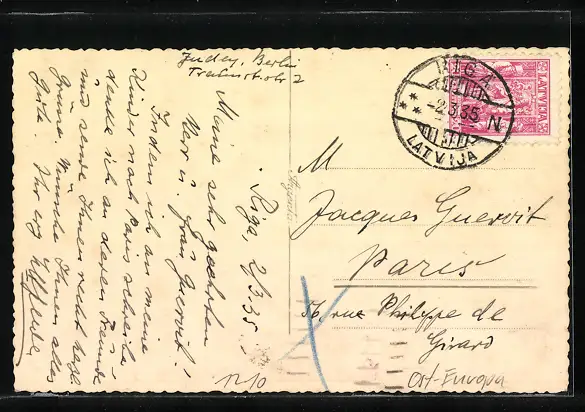 Juden, Berlin
Trabnstrstr 2
Riga, 2/3.35.
Meine sehr geehrten
Herr u. Frau Guervit!
Indem ich an meine
Kinder nach Paris schreibe
denke ich an deren Freunde
und sende Ihnen recht herzl.
Grüsse. Wünsche Ihnen alles
Gute. Ihr erg
M
Jacques Guervit
Paris
56 rue Philippe de
Girard
Ost-Europa
1210
RIGA
-2.3.35 N
LATVIJA
LATVIJA